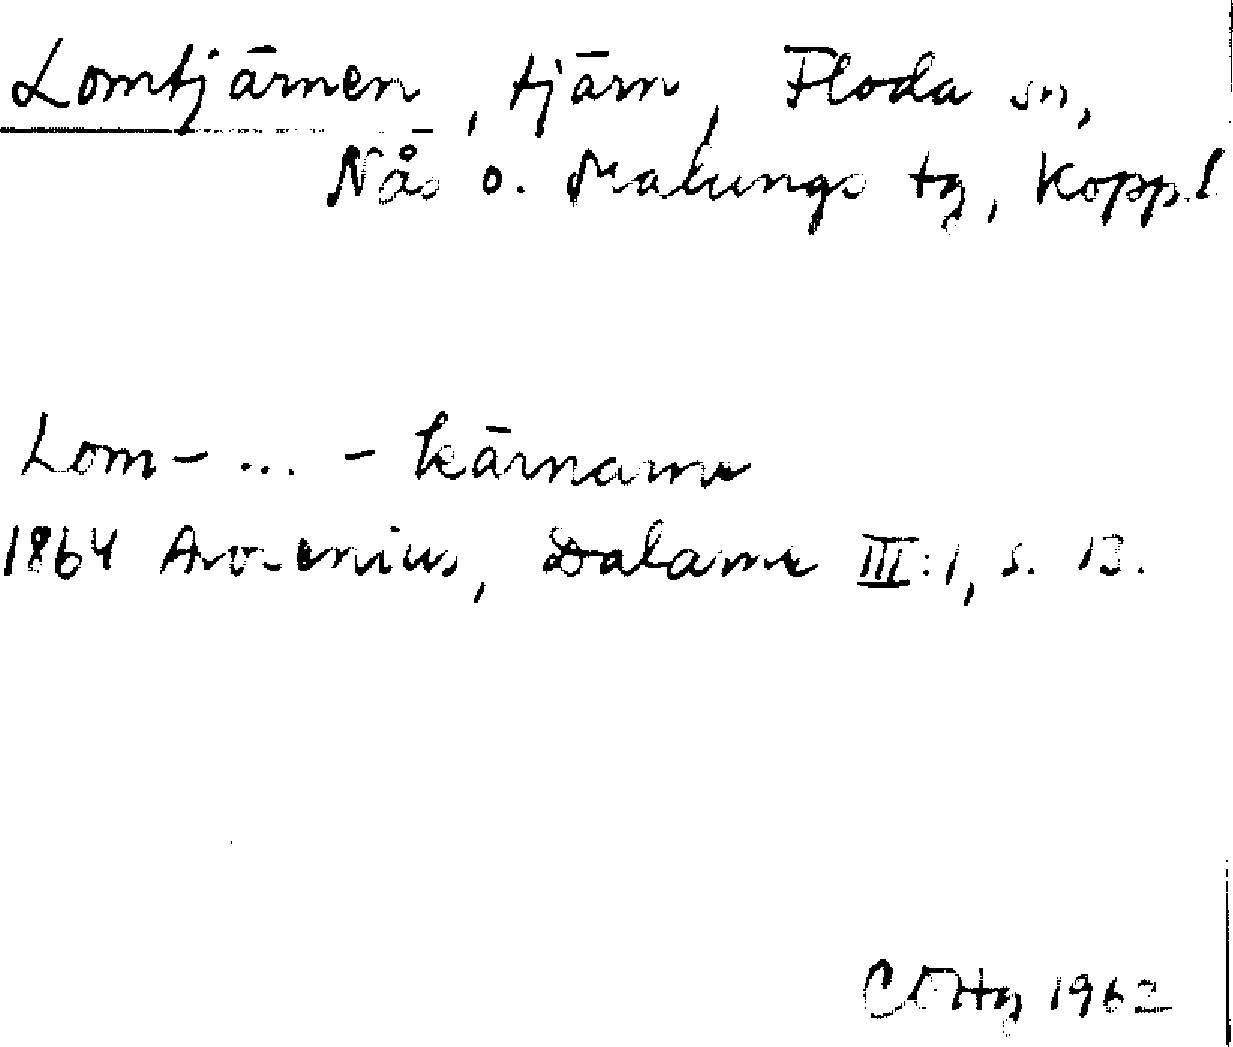 Lomtjärnen, tjärn, Floda sn,
Nås o. Malungs tg, Kopp.l
Lom- ... -kärnarne
1864 Arosenius, Dalarne III:1, s. 13.
1962